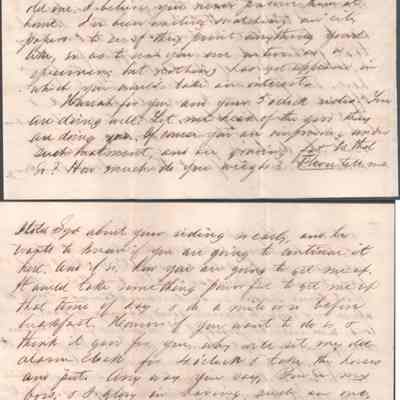 old one. I believe you never passed them at
home. I've been waiting & watching our city
papers to see if they print anything yours
like, so as to send you one or two as a
specimen; but nothing has yet appeared in
which you would take an interest.
Hurrah for you and your 5 oclock rides! You
are doing well. Let me hear of the good they
are doing you. Of course you are improving under
such treatment, and are growing fat. Is that
so? How much do you weigh?
about your riding so early, and he
wants to know if you are going to continue it
here. And if so, how you are going to get me up.
It would take something powerful to get me up
that time of day & do a mile or so before
breakfast. However if you want to do so, &
think it good for you, why we'll set my old
alarm clock for 4 oclock & take the horses
and put. Any way you say, You're my
boss, & I glory in having such an one,